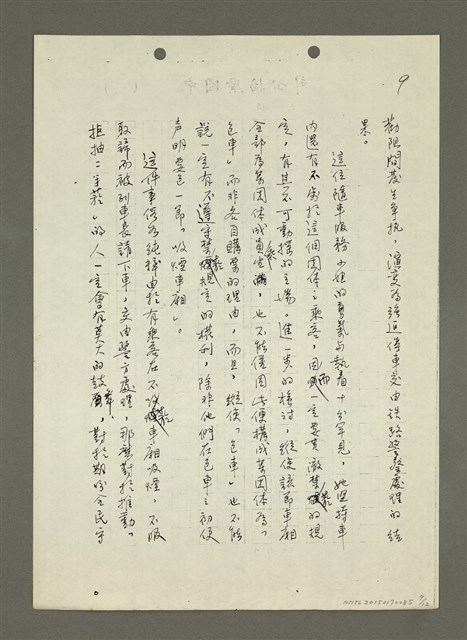 9
勸阻間發生爭執，演變為強迫停車交由鐵路警察處理的結
果。
這位隨車服務小姐的勇氣與執着十分罕見，她堅持車
內還有不屬於這個團體之乘客，因而一定要貫徹禁菸的規
定，有其不可動搖的立場。進一步的檢討，縱使該節車廂
全部為某團體成員坐滿，也不能僅因此便構成某團體為「
包車」而非各自購票的理由，而且，縱使「包車」也不能
說一定有不遵守禁菸規定的權利，除非他們在包車之初便
声明要包一節「吸煙車廂」。
這件事倘若純粹由於有乘客在不吸菸車廂吸煙，不服
取締而被列車長請下車，交由警方處理，那麼對於推動「
拒抽二手菸」的人一定會有莫大的鼓舞，對於期盼全民守
NMTL20150170085
9/12